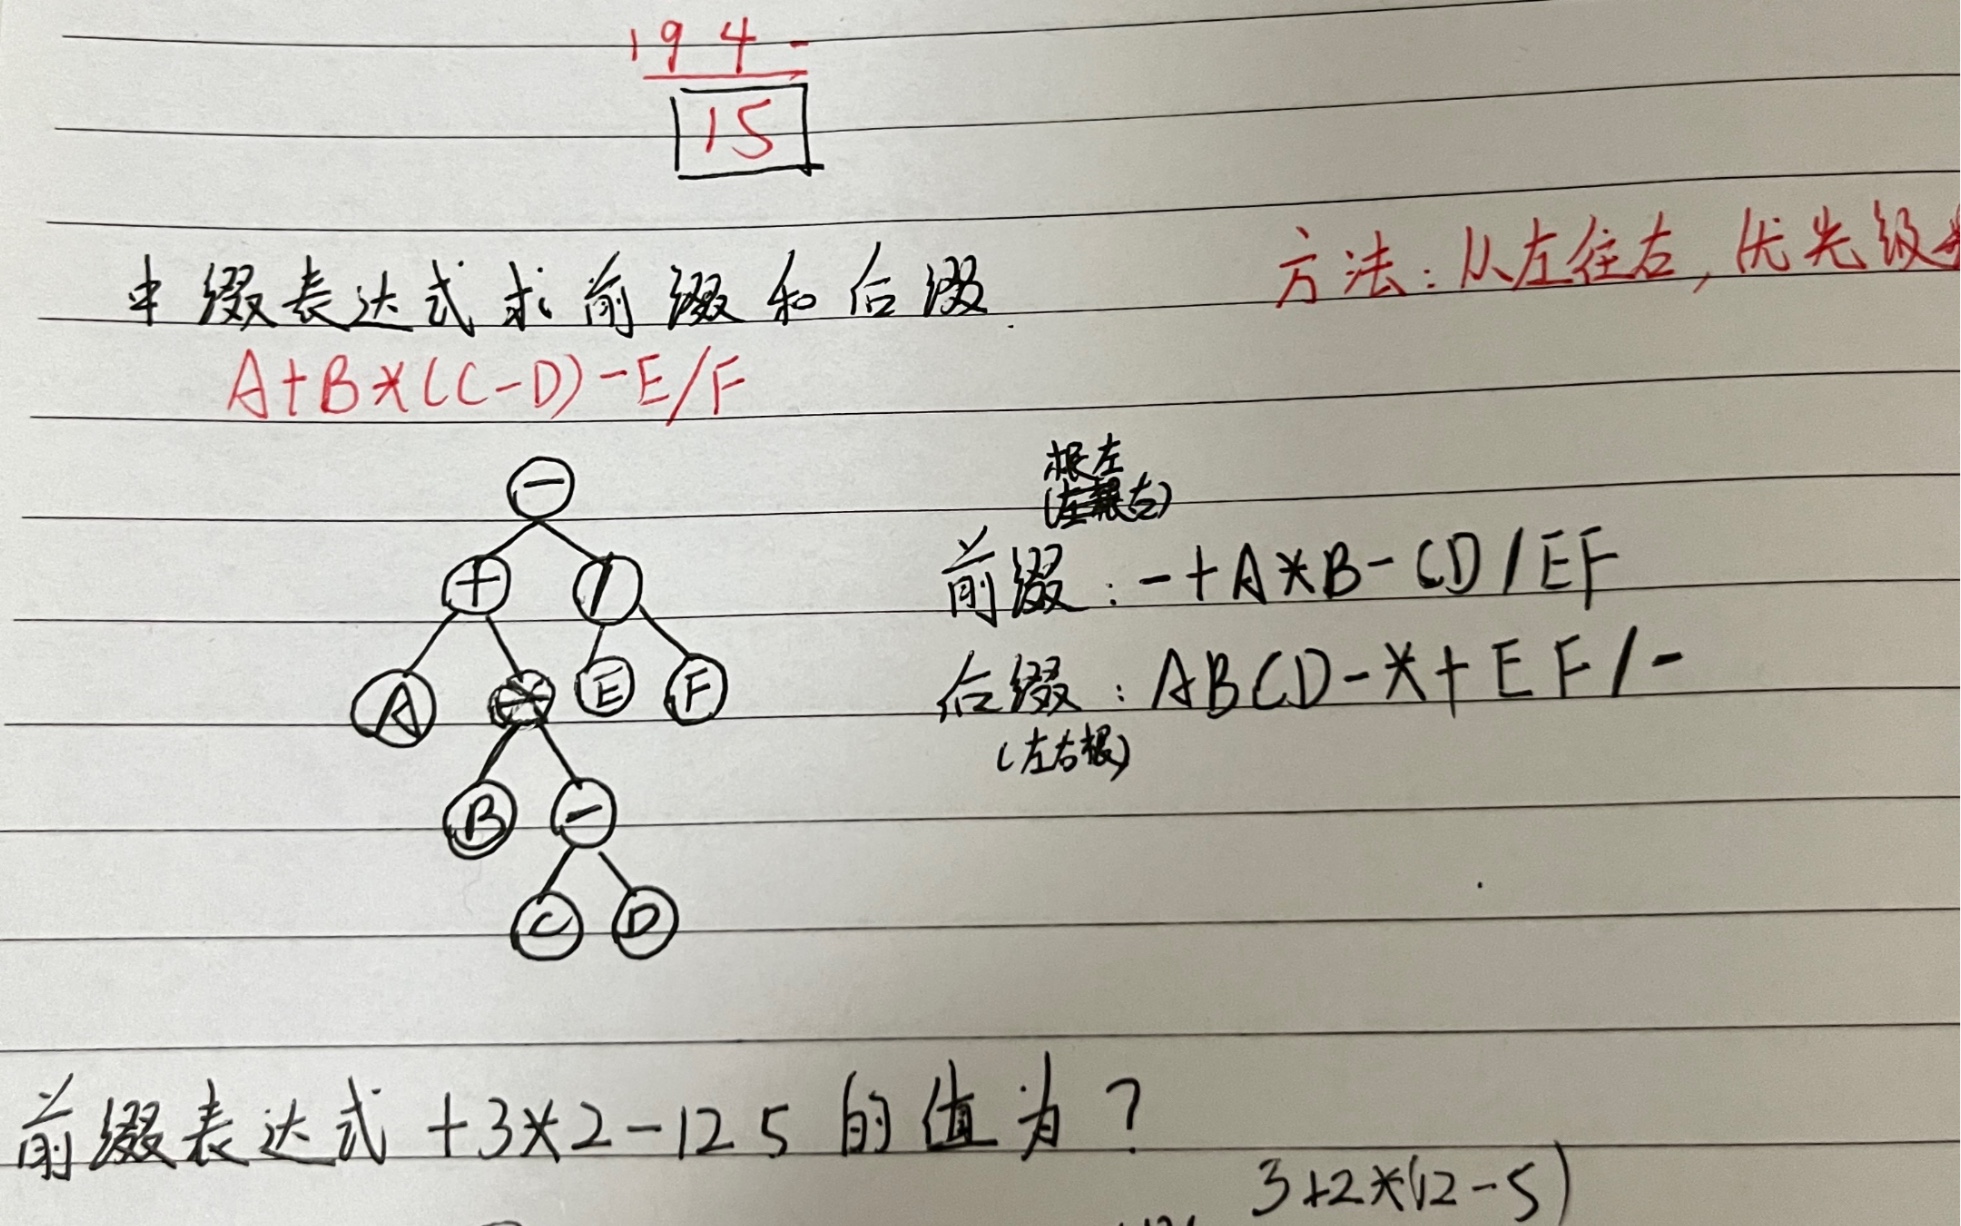 19 4 -
15
中缀表达式求前缀和后缀.
方法:从左往右,优先级
A+B*(C-D)-E/F
-
+ /
A * E F
B -
C D
根左
右)
前缀:-+A*B-CD/EF
后缀:ABCD-*+EF/-
(左右根)
前缀表达式+3*2-12 5的值为?
3+2*(12-5)